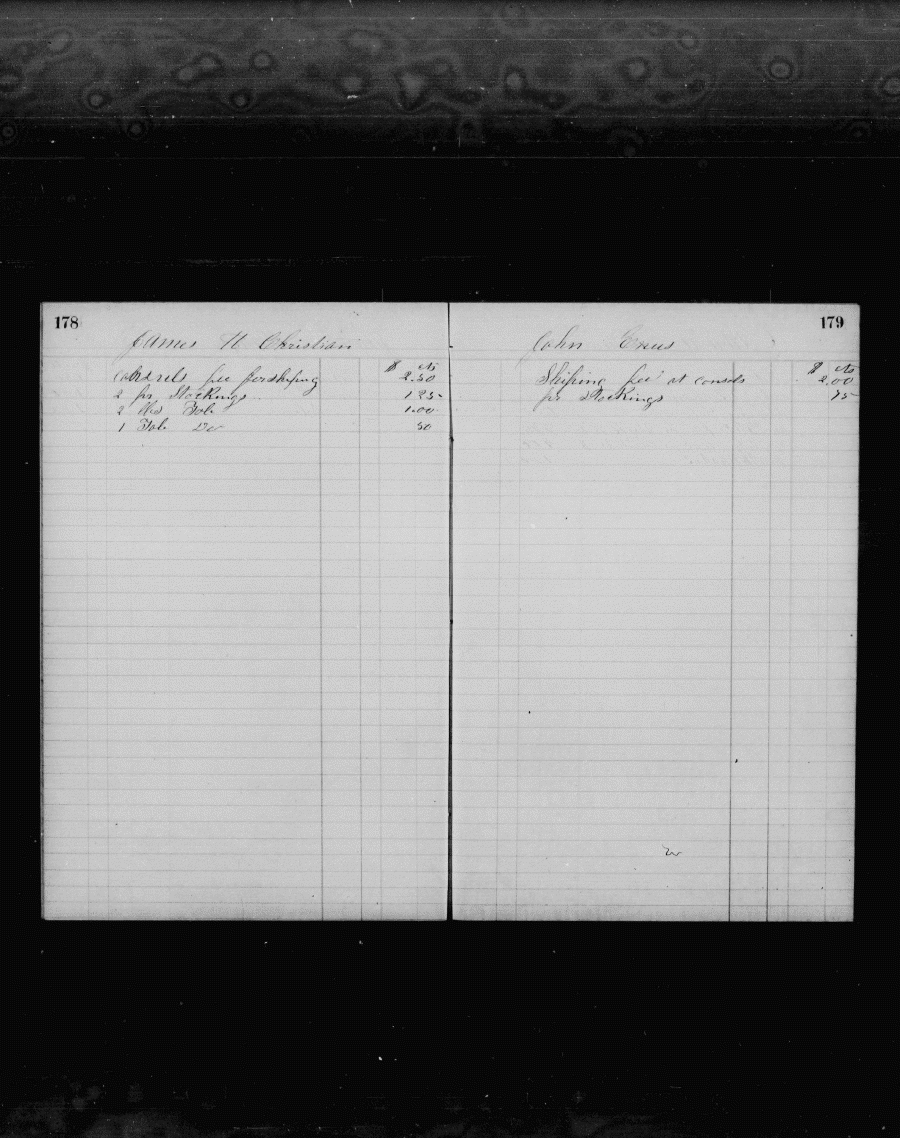 178
James H Christian
$ cts
fee for shiping 2.50
2 pr Stockings 1 25
2 lbs Tob 1.00
1 Tob 50
179
John Enus
$ cts
Shiping fee at consols 2.00
pr Stockings 75